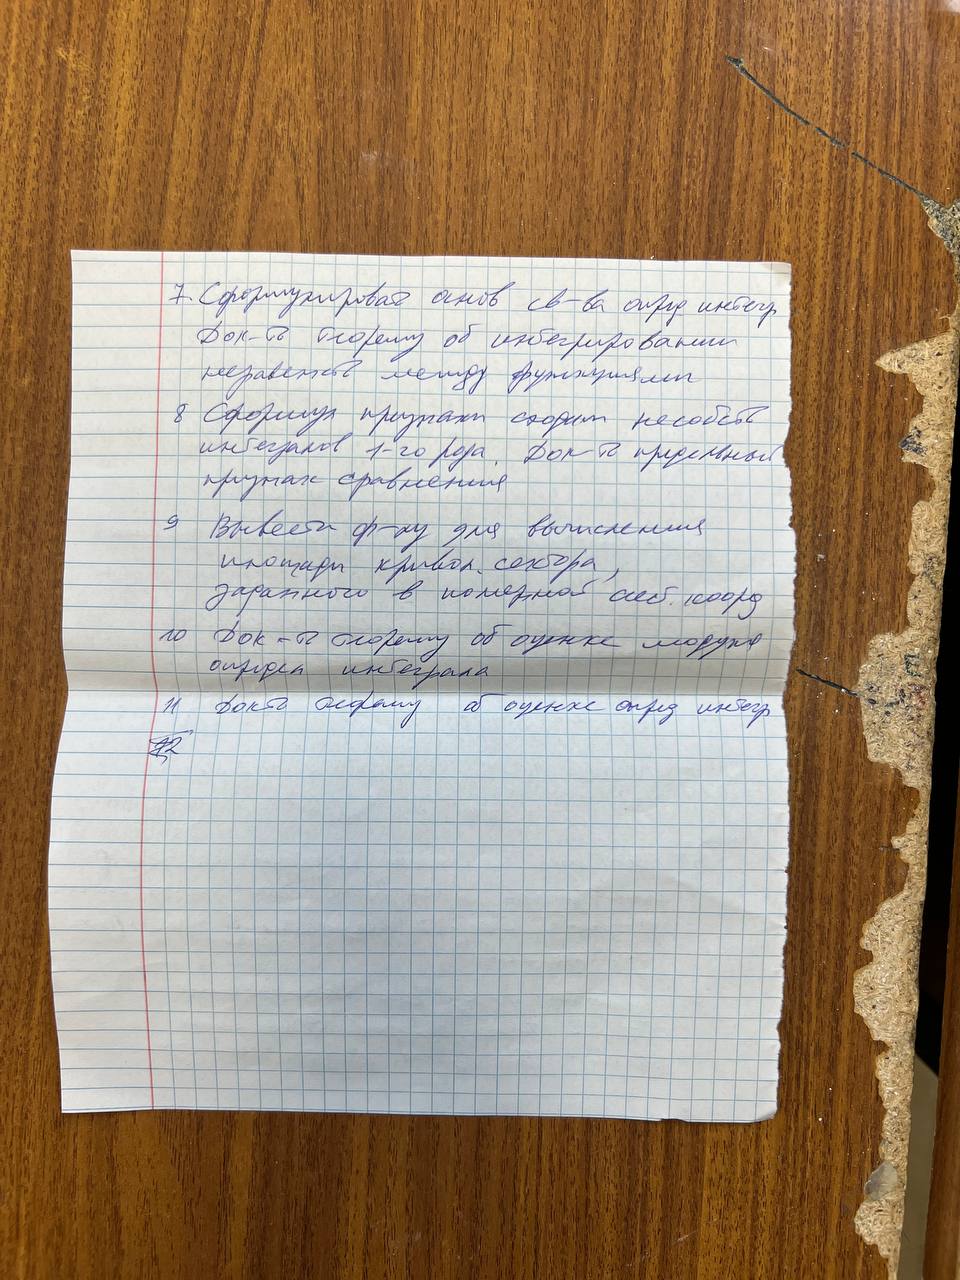 7. Сформулировать основ св-ва опред интегр
Док-ть теорему об интегрировании
неравенств между функциями
8 Сформул признаки сходим несобств
интегралов 1-го рода. Док-ть предельный
признак сравнения
9 Вывести ф-лу для вычисления
площади кривол. сектора,
заданного в полярной сист. коорд
10 Док-ть теорему об оценке модуля
определ интеграла
11 Док-ть теорему об оценке опред интегр